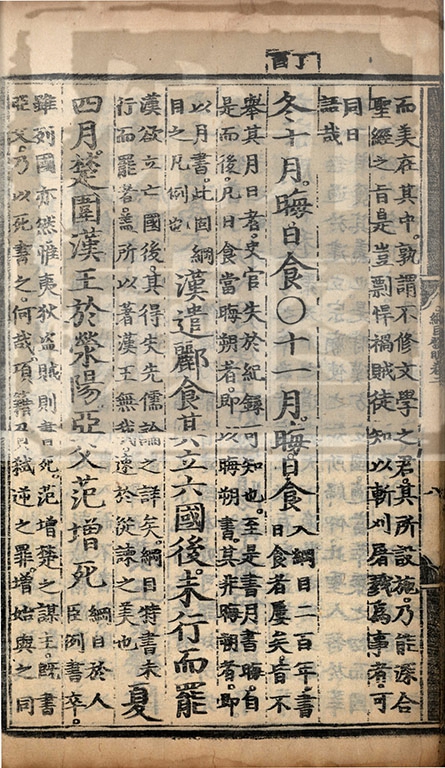 丁酉
而美在其中。孰謂不修文學之君。其所設施。乃能深合
聖經之旨。是豈剽悍禍賊徒知以斬刈屠戮爲事者。可
同日
語哉
冬十月。晦。日食〇十一月。晦。日食
入綱目二百年書
日食者屢矣。皆不
舉其月日者。史官失於紀錄可知也。至是書月書晦。自
是而後。凡日食當晦朔者。即以晦朔書。其非晦朔者。即
以月書。此固綱
目之凡例也
漢遣酈食其立六國後。未行而罷
漢欲立亡國後。其得失先儒論之詳矣。綱目特書未
行而罷者。蓋所以著漢王無我。速於從諫之美也
夏
四月。楚圍漢王於滎陽。亞父范增死
綱目於人
臣例書卒。
雖列國亦然。惟夷狄盜賊則書死。范增楚之謀主。既書
亞父。乃以死書之。何哉。項籍有弑逆之罪。增始與之同